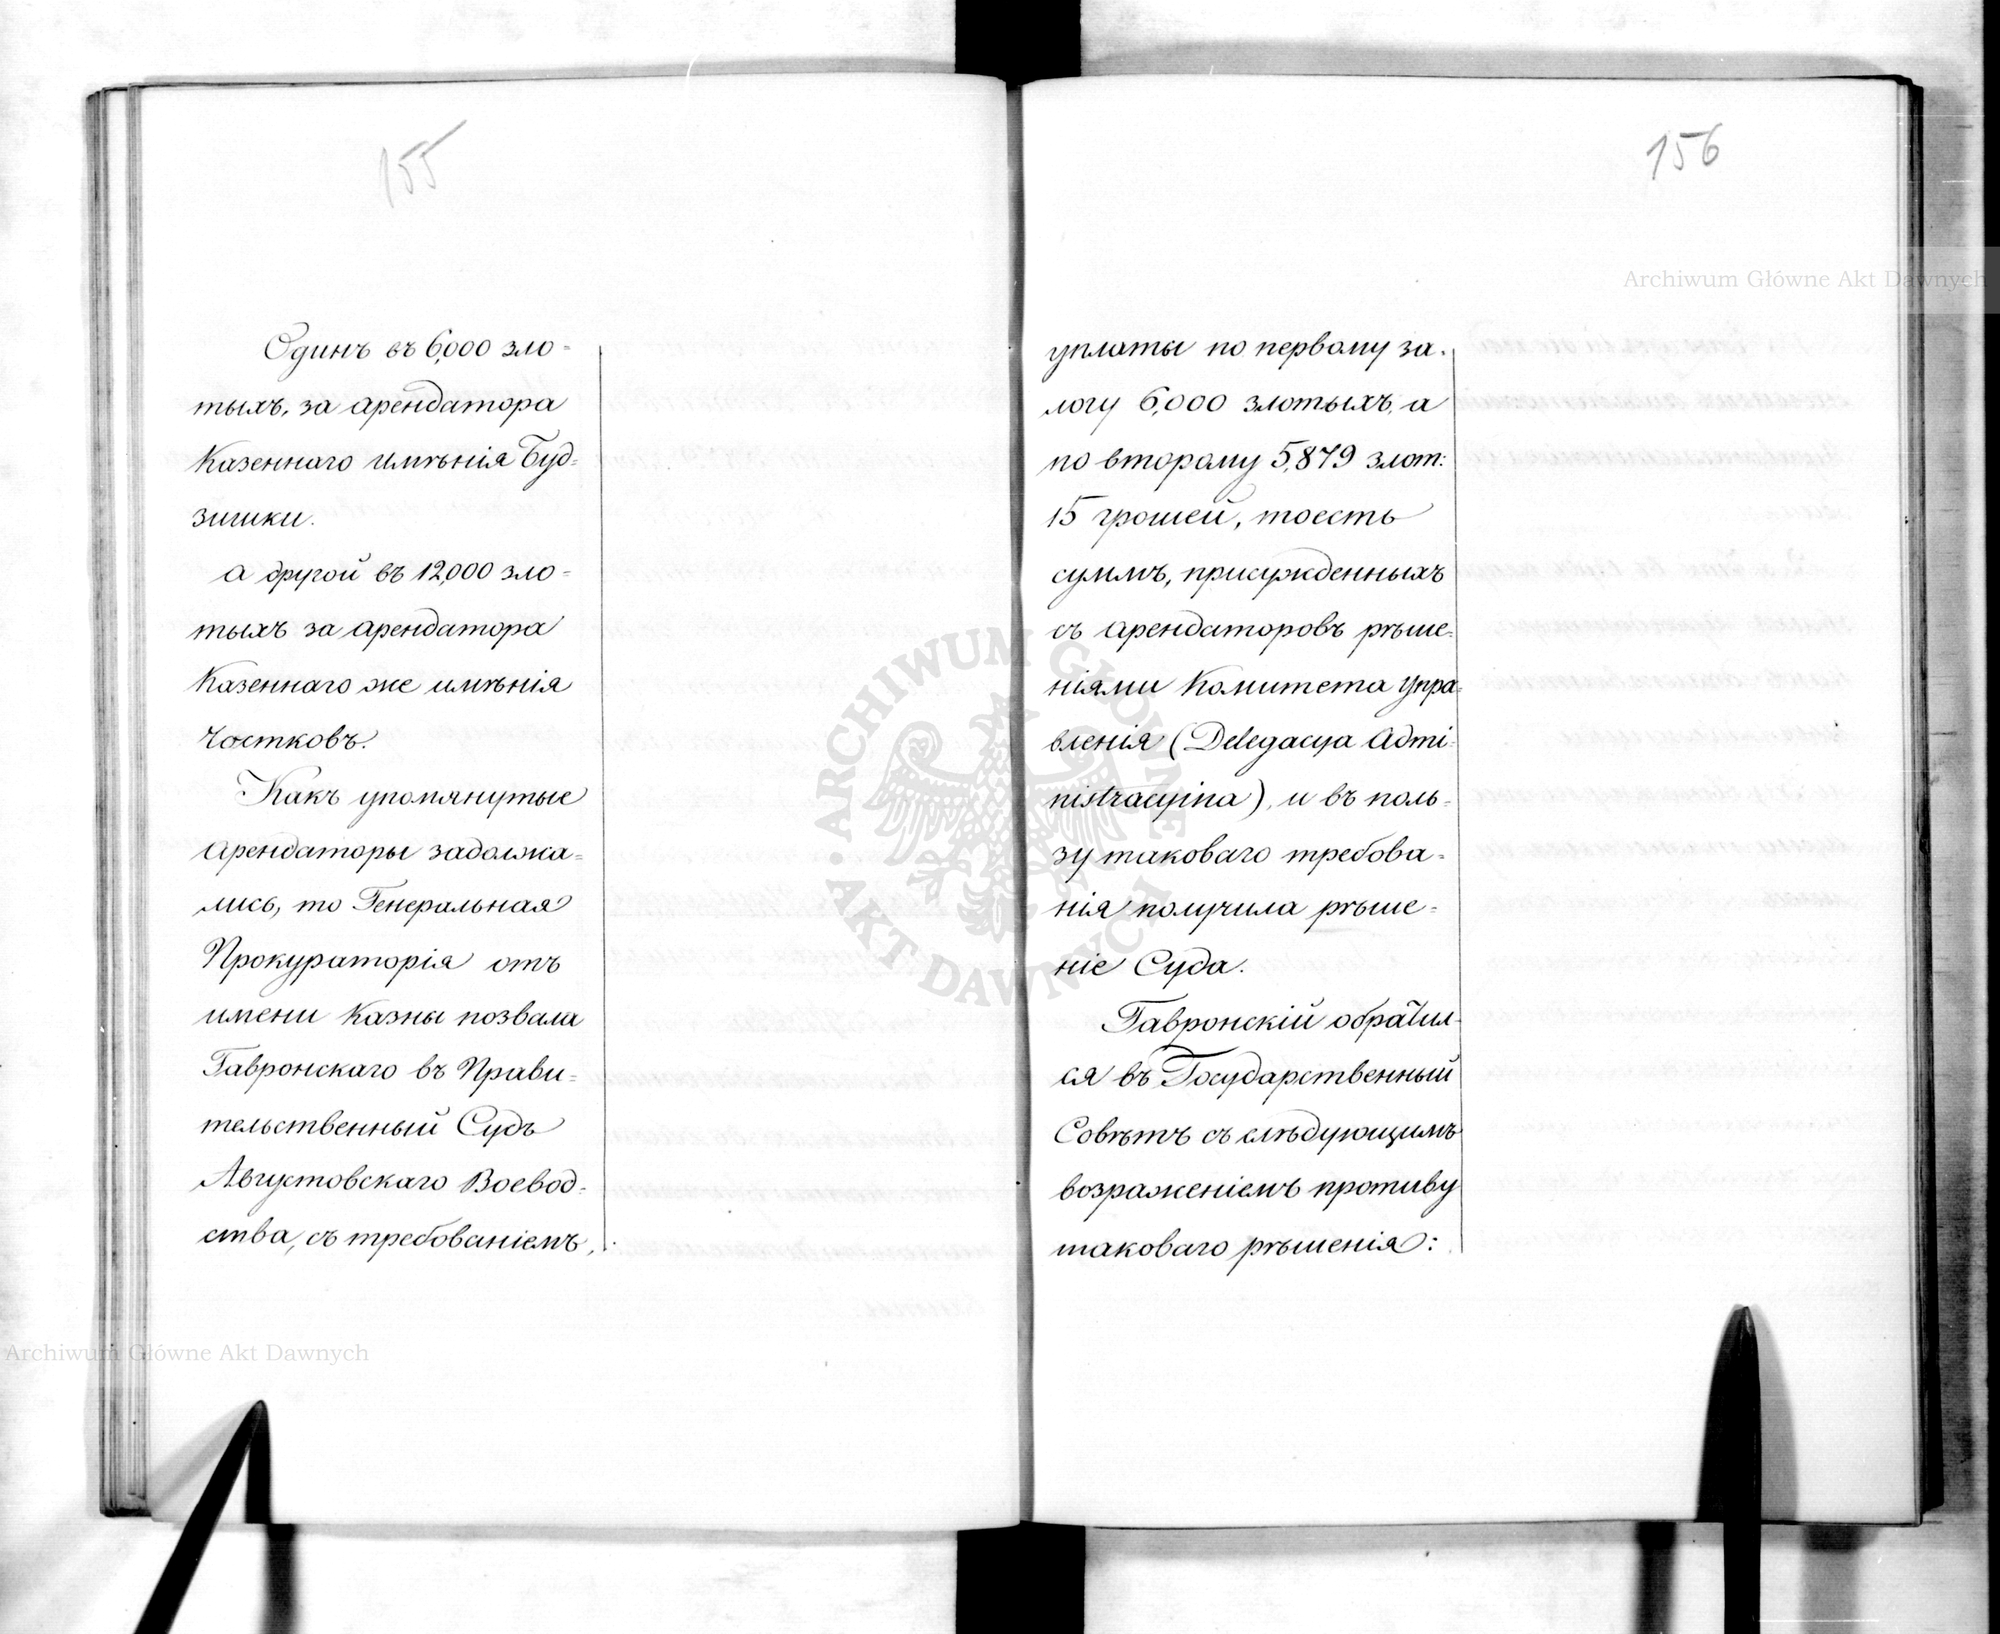 155
Одинъ въ 6,000 зло-
тыхъ, за арендатора
Казеннаго имѣнія Буд-
зишки.
а другой въ 12,000 зло-
тыхъ за арендатора
Казеннаго же имѣнія
Чостковъ.
Какъ упомянутые
арендаторы задолжа-
лись, то Генеральная
Прокураторія отъ
имени Казны позвала
Гавронскаго въ Прави-
тельственный Судъ
Августовскаго Воевод-
ства, съ требованіемъ,
156
уплаты по первому за-
логу 6,000 злотыхъ, а
по второму 5,879 злот:
15 грошей, тоесть
суммъ, присужденныхъ
съ арендаторовъ рѣше-
ніями Комитета Упра-
вленія (Delegacya Admi-
nistracyina), и въ поль-
зу таковаго требова-
нія получила рѣше-
ніе Суда.
Гавронскій обратил-
ся въ Государственный
Совѣтъ съ слѣдующимъ
возраженіемъ противу
таковаго рѣшенія:
Archiwum Główne Akt Dawnych
ARCHIWUM GŁÓWNE AKT DAWNYCH
Archiwum Główne Akt Dawnych